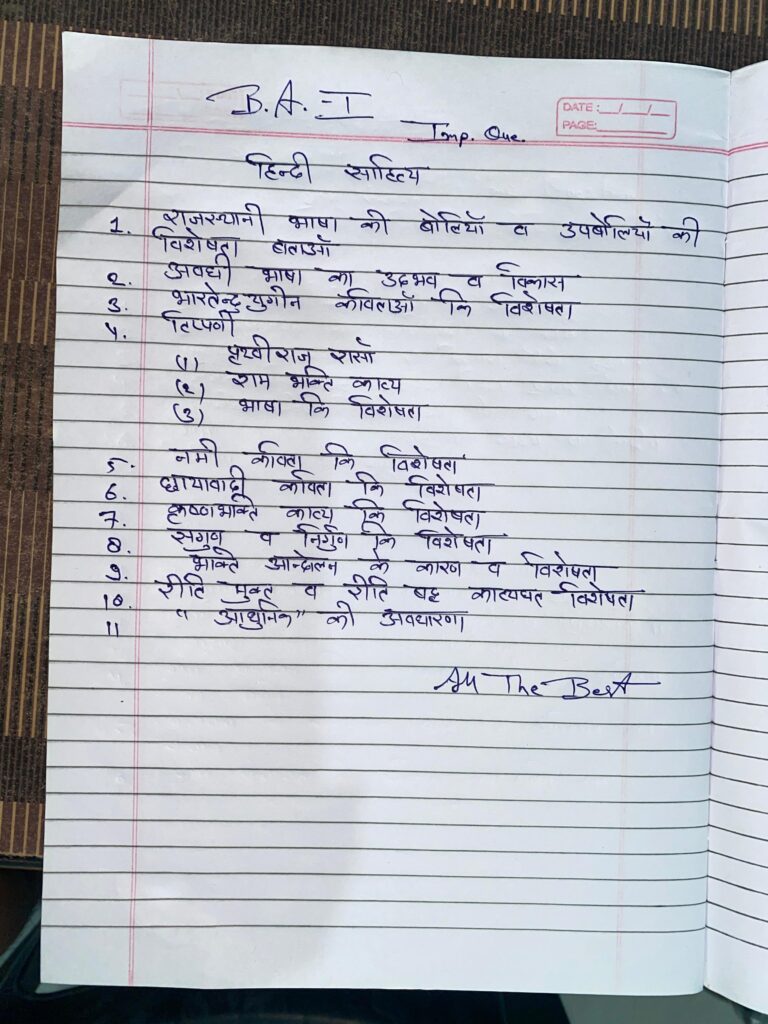 B.A.-I
DATE:__/__/__
PAGE:________
Imp. Que.
हिन्दी साहित्य
1. राजस्थानी भाषा की बोलियॉ व उपबोलियॉ की
विशेषता बताऑ
2. अवधी भाषा का उद्भव व विकास
3. भारतेन्दु युगीन कविताऑ कि विशेषता
4. टिप्पणी
(1) पृथ्वीराज रासॉ
(2) राम भक्ति काव्य
(3) भाषा कि विशेषता
5. नयी कविता कि विशेषता
6. छायावादी कविता कि विशेषता
7. कृष्णभक्ति काव्य कि विशेषता
8. सगुण व निर्गुण कि विशेषता
9. भक्ति आन्दोलन के कारण व विशेषता
10. रीति मुक्त व रीति बद्द काव्यधत विशेषता
11 "आधुनिक" की अवधारणा
All The Best